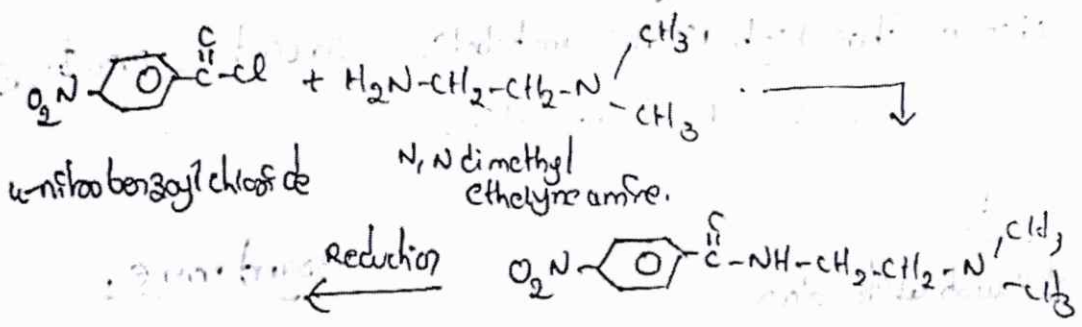 O₂N- C -C-Cl + H₂N-CH₂-CH₂-N CH₃ CH₃
4-nitrobenzoyl chloride N, N dimethyl
ethelyne amine.
Reduction O₂N- C -C-NH-CH₂-CH₂-N CH₃ CH₃